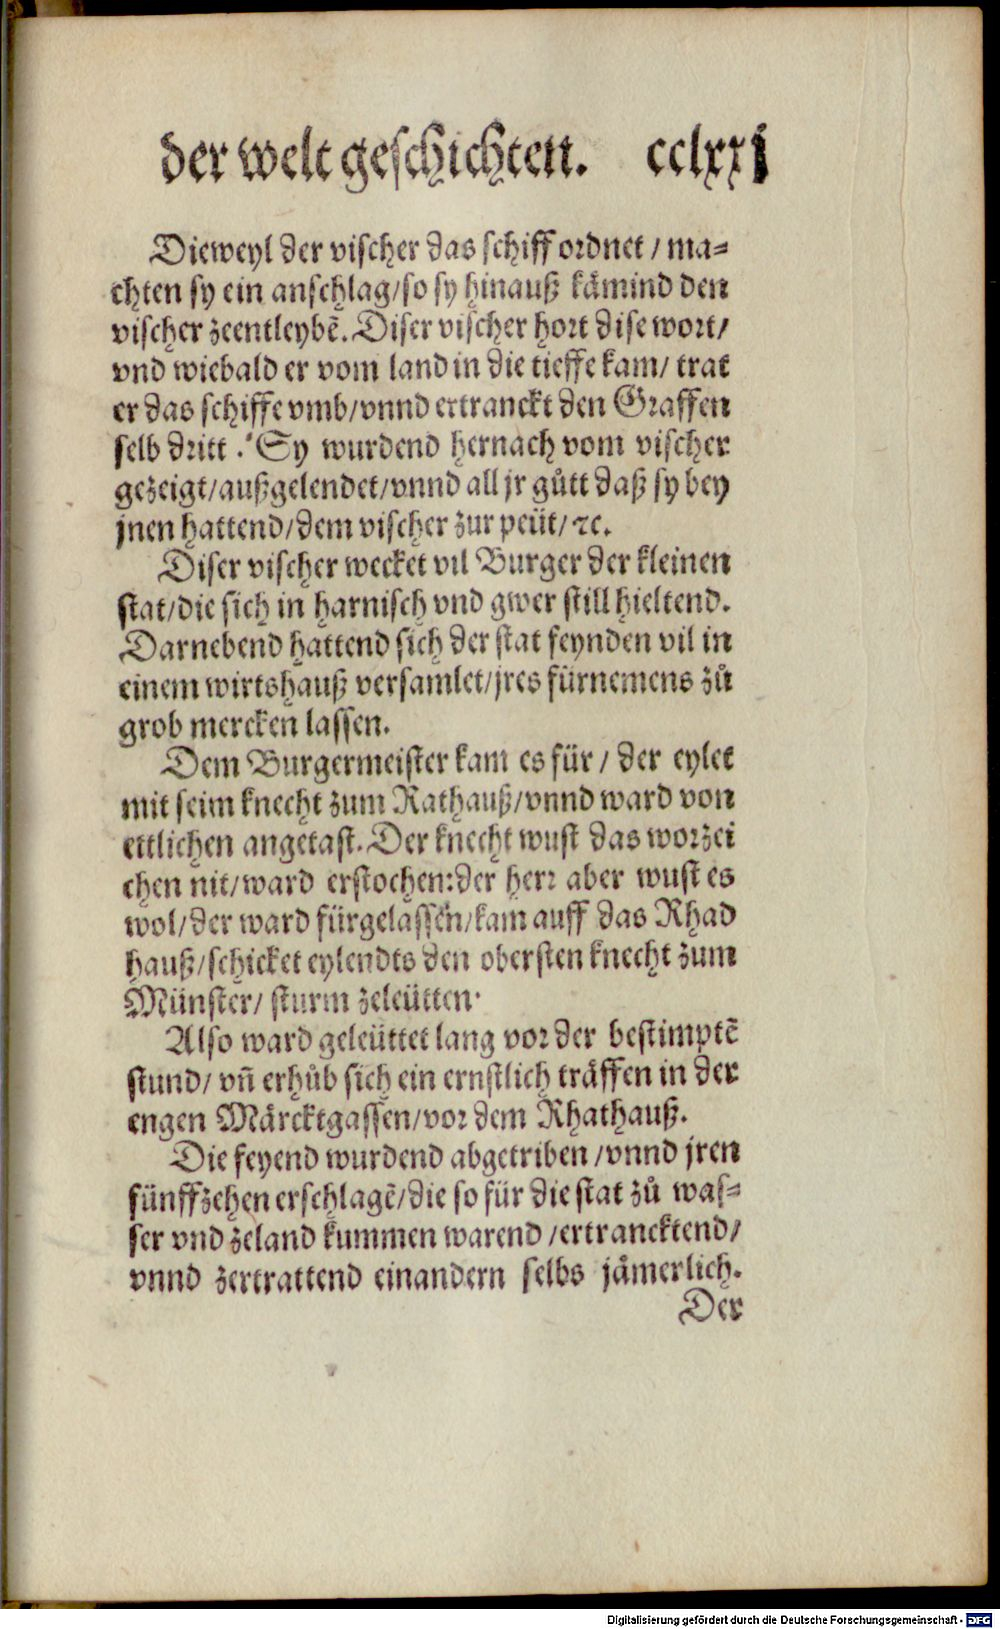 der welt geschichten. cclxxj
Dieweyl der vischer das schiff ordnet / ma⸗
chten sy ein anschlag/so sy hinauß kämind den
vischer zeentleybē. Diser vischer hort dise wort/
vnd wiebald er vom land in die tieffe kam/ trat
er das schiffe vmb/vnnd ertranckt den Graffen
selb dritt. Sy wurdend hernach vom vischer
gezeigt/außgelendet/vnnd all jr gůtt daß sy bey
jnen hattend/dem vischer zur peüt/ꝛc.
Diser vischer wecket vil Burger der kleinen
stat/die sich in harnisch vnd gwer still hieltend.
Darnebend hattend sich der stat feynden vil in
einem wirtshauß versamlet/jres fürnemens zů
grob mercken lassen.
Dem Burgermeister kam es für/ der eylet
mit seim knecht zum Rathauß/vnnd ward von
ettlichen angetast. Der knecht wust das worzei
chen nit/ward erstochen:der herr aber wust es
wol/der ward fürgelassen/kam auff das Rhad
hauß/schicket eylendts den obersten knecht zum
Münster/ sturm zeleütten.
Also ward geleüttet lang vor der bestimptē
stund/ vñ erhůb sich ein ernstlich träffen in der
engen Märcktgassen/vor dem Rhathauß.
Die feyend wurdend abgetriben /vnnd jren
fünffzehen erschlagē/die so für die stat zů was⸗
ser vnd zeland kummen warend /ertrancktend/
vnnd zertrattend einandern selbs jämerlich.
Der
Digitalisierung gefördert durch die Deutsche Forschungsgemeinschaft - DFG